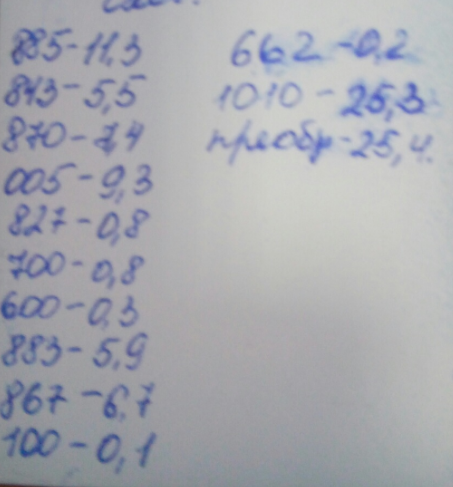 885-11,3
843-5,5
870-7,4
005-9,3
827-0,8
700-0,8
600-0,3
883-5,9
867-6,7
100-0,1
662-0,2
1010-25,3
преобр-25,4.